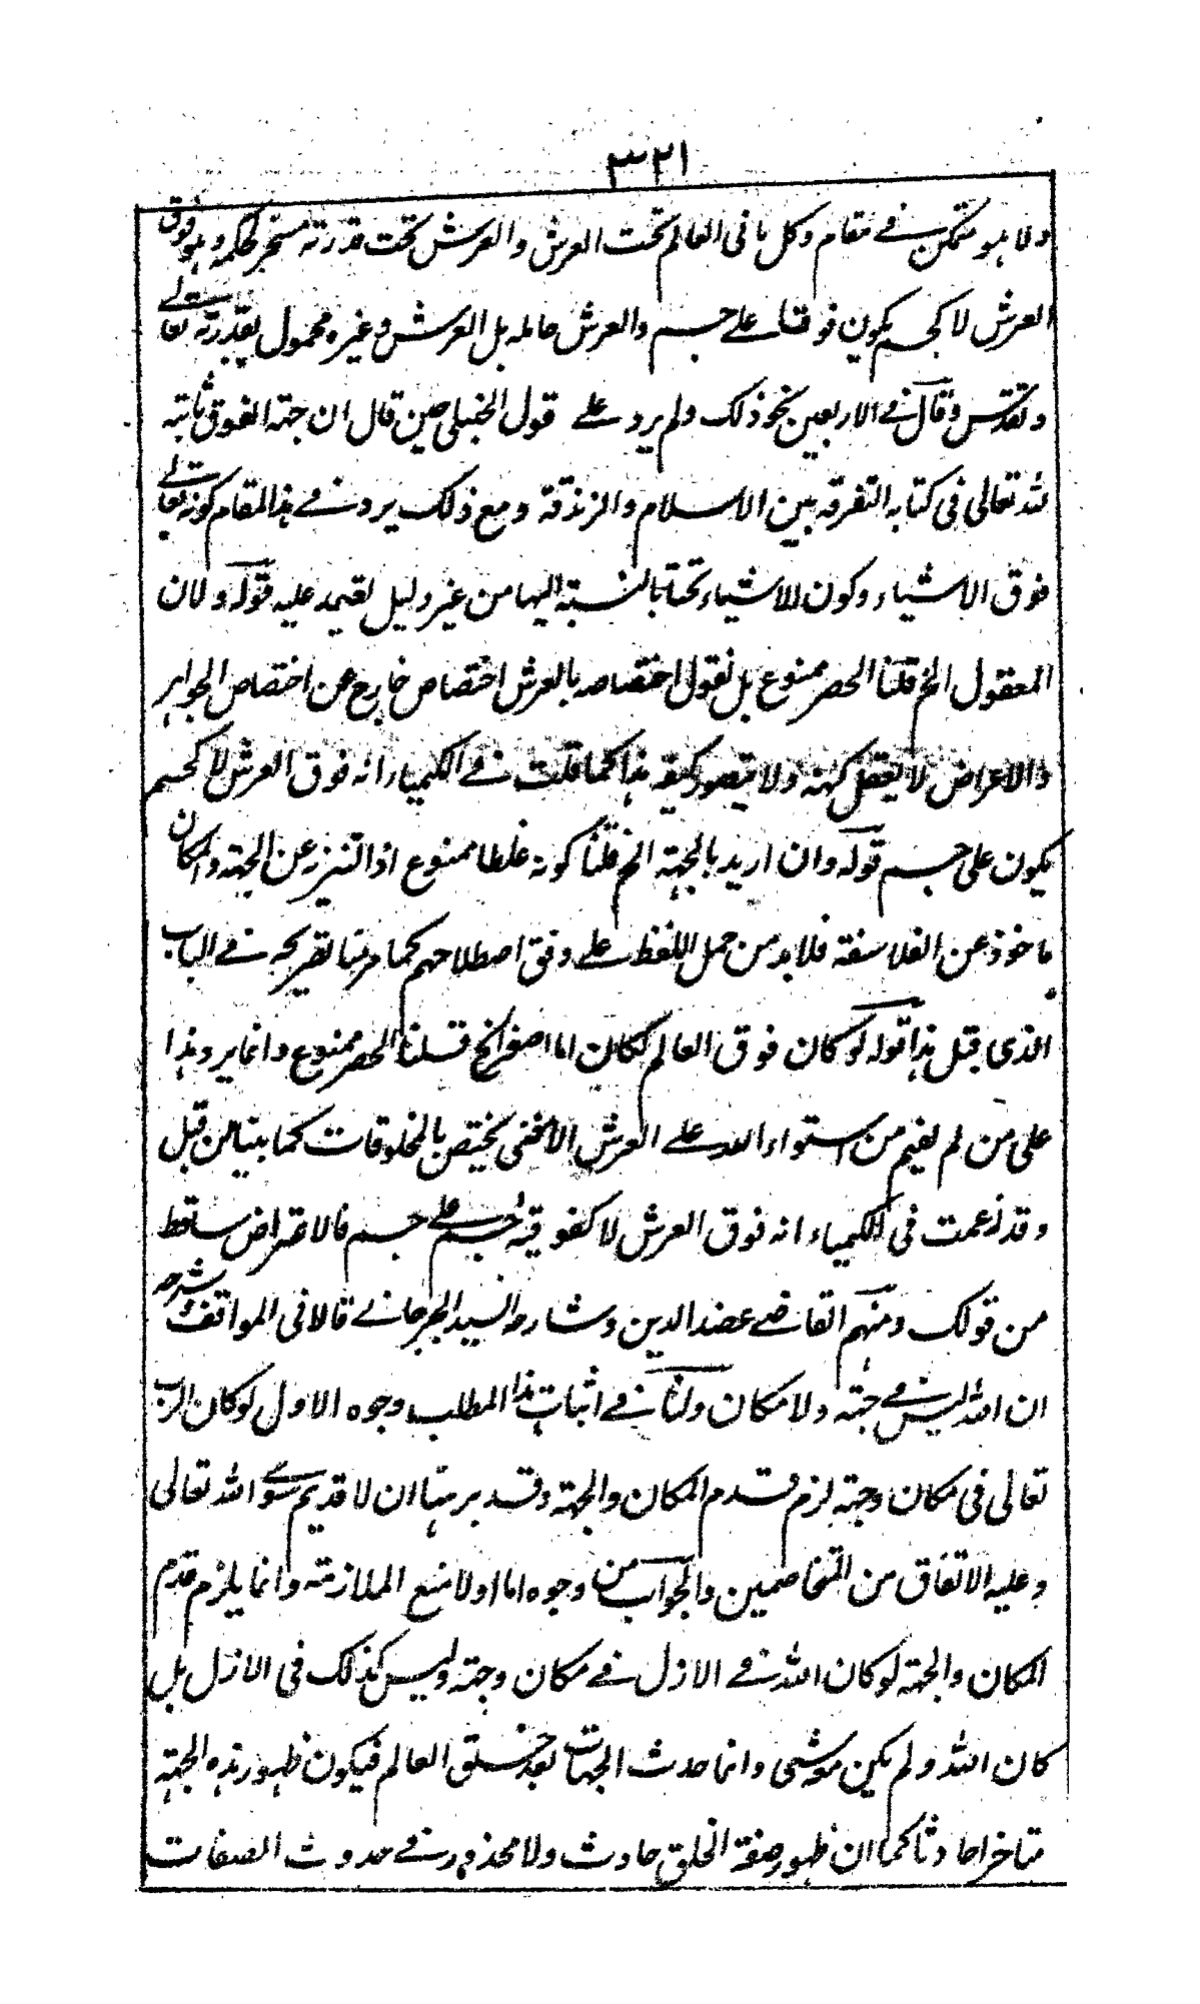 ٣٢١
ولا هو متمكن في مقام وكل ما في العالم تحت العرش والعرش تحت قدرته مسخر لحكمه وهو فوق
العرش لا كجسم يكون فوقا على جسم والعرش حامله بل العرش وغيره محمول بقدرته تعالى
وتقدس وقال في الاربعين نحو ذلك ولم يرد على قول الحنبلي حين قال ان جهة الفوق ثابتة
لله تعالى في كتابه التفرقة بين الاسلام والزندقة ومع ذلك يرد في هذا المقام كونه تعالى
فوق الاشياء وكون الاشياء تحتا بالنسبة اليها من غير دليل يعتمد عليه قوله ولان
المعقول الخ قلنا الحصر ممنوع بل نقول اختصاصه بالعرش اختصاص خارج عن اختصاص الجواهر
والاعراض لا يعقل كنهه ولا يتصور كيفه هذا كما قلت في الكيمياء انه فوق العرش لا كجسم
يكون على جسم قوله وان اريد بالجهة الخ قلنا كونه غلطا ممنوع اذ التنزيه عن الجهة والمكان
ماخوذ عن الفلاسفة فلا بد من حمل اللفظ على وفق اصطلاحهم كما مر منا تقريره في الباب
الذي قبل هذا قوله لو كان فوق العالم لكان اما اصغر الخ قلنا الحصر ممنوع وانما يرد هذا
على من لم يفهم من استواء الله على العرش الا نحو يختص بالمخلوقات كما بينا من قبل
وقد زعمت في الكيمياء انه فوق العرش لا كفوقية جسم على جسم فالاعتراض ساقط
من قولك ومنهم القاضي عضد الدين وشارحه السيد الجرجاني قالا في المواقف وشرحه
ان الله ليس في جهة ولا مكان ولنا في اثبات هذا المطلب وجوه الاول لو كان الرب
تعالى في مكان وجهة لزم قدم المكان والجهة وقد برهنا ان لا قديم سوى الله تعالى
وعليه الاتفاق من المتخاصمين والجواب من وجوه اما اولا منع الملازمة وانما يلزم قدم
المكان والجهة لو كان الله في الازل في مكان وجهة وليس كذلك في الازل بل
كان الله ولم يكن معه شي وانما حدث الجهات بعد خلق العالم فيكون ظهور هذه الجهة
متاخرا حادثا كما ان ظهور صفة الخلق حادث ولا محذور في حدوث الصفات